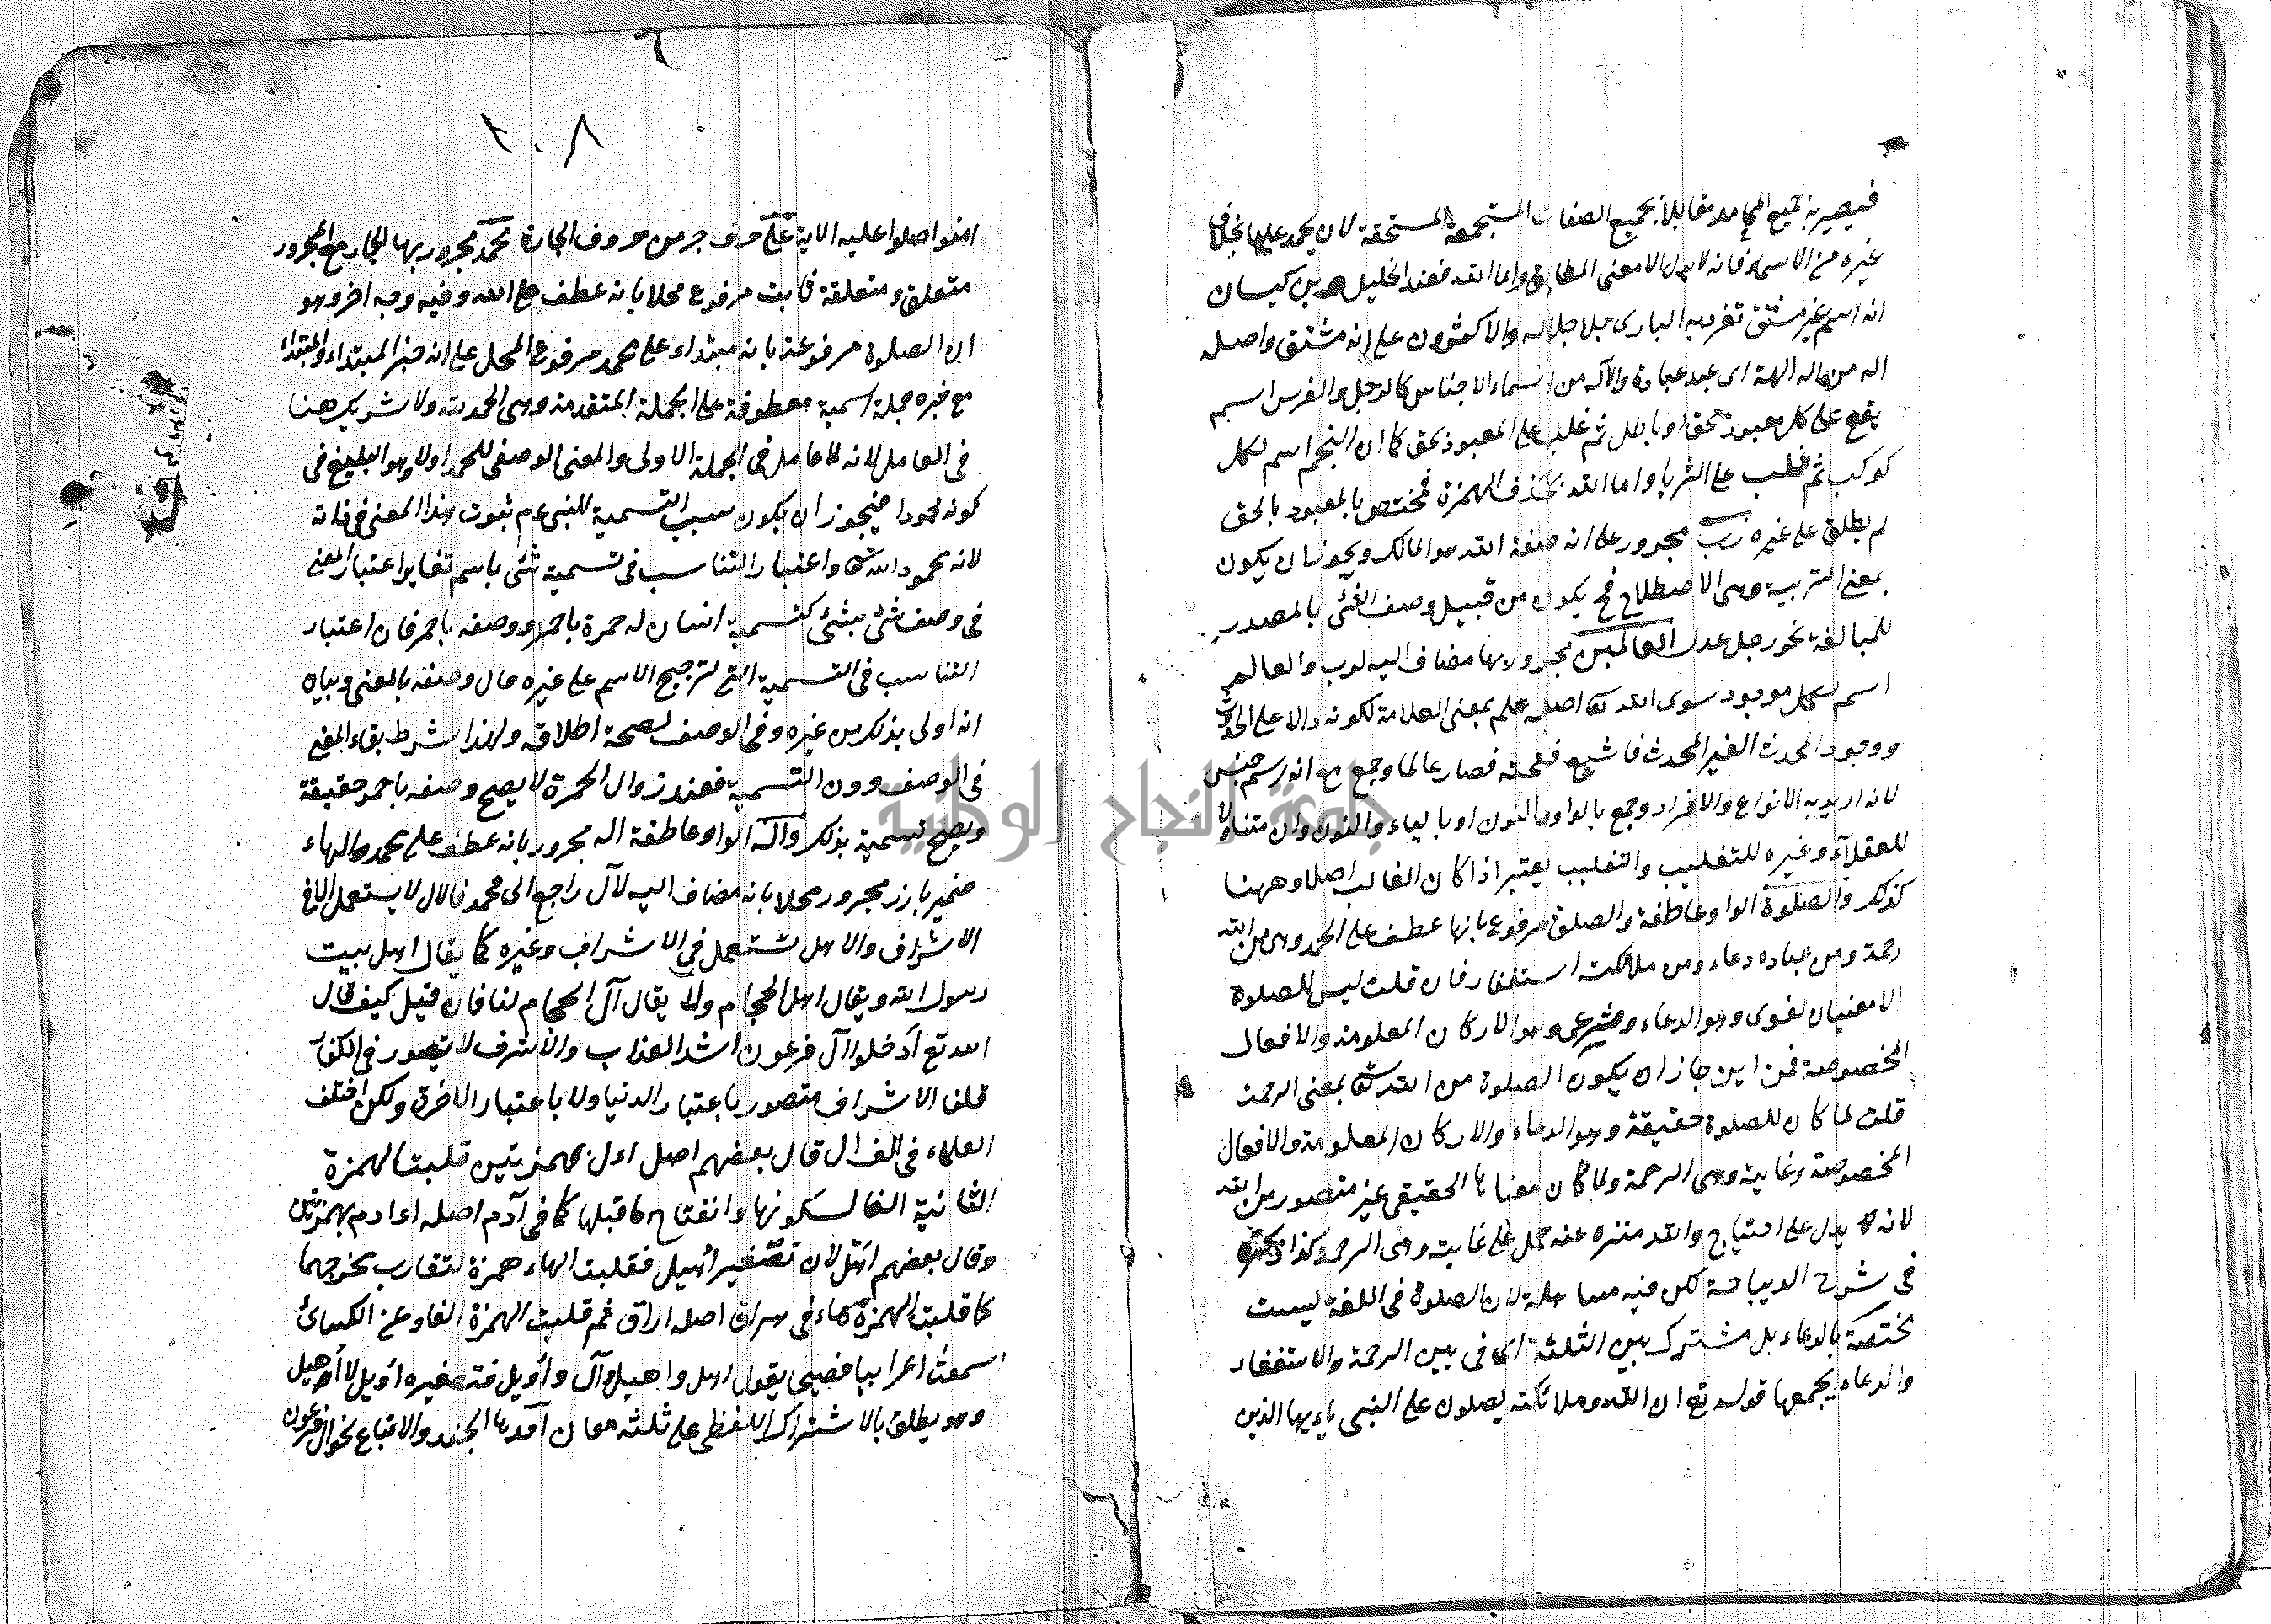 فيصير جميع المحامد مقابلا بجميع الصفات المستجمعة المستحقة لان يحمد عليها بخلاف
غيره من الاسماء فانه لا يدل الا معنى واما الله فعند الخليل وبن كيسان
انه اسم غير مشتق تفرد به البارى جل جلاله والاكثرون على انه مشتق واصله
اله من اله الهة اى عبد عبادة والآله من اسماء الاجناس كالرجل والفرس اسم
يقع على كل معبود بحق او باطل ثم غلب على المعبود بحق كما ان النجم اسم لكل
كوكب ثم غلب على الثريا واما الله بحذف الهمزة فمختص بالمعبود بالحق
لم يطلق على غيره رب مجرور على انه صفة الله هو المالك ويجوز ان يكون
بمعنى التربية وهى الاصطلاح فح يكون من قبيل وصف الشئ بالمصدر
للمبالغة نحو رجل عدل العالمين مجرور بها مضاف اليه لرب والعالم
اسم لكل موجود سوى الله تعا اصله علم بمعنى العلامة لكونه دالا على الحدوث
ووجود المحدث الغير المحدث فاشبع فتحته فصار عالما وجمع مع انه اسم جنس
لانه اريد به الانواع والافراد وجمع بالواو والنون او بالياء والنون وان متناولا
للعقلآء وغيره للتغليب والتغليب يعتبر اذا كان الغالب اصلا وههنا
كذلك والصلوة الواو عاطفة والصلوة مرفوع بانها عطف على الحمد وهى من الله
رحمة ومن عباده دعاء ومن ملائكته استغفار فان قلت ليس للصلوة
الا معنيان لغوى وهو الدعاء وشرعى وهو الاركان المعلومة والافعال
المخصوصة فمن اين جاز ان يكون الصلوة من الله تعا بمعنى الرحمة
قلت لما كان للصلوة حقيقة وهو الدعاء والاركان المعلومة والافعال
المخصوصة وغاية وهى الرحمة ولما كان معناها الحقيقى غير متصور من الله
لانه يدل على احتياج والله منزه عنه حمل على غايته وهى الرحمة كذا
فى شرح الديباجة لكن فيه مساهلة لان الصلوة فى اللغة ليست
مختصة بالدعاء بل مشترك بين الثلثة اى فى بين الرحمة والاستغفار
والدعاء يجمعها قوله تع ان الله وملائكته يصلون على النبى يايها الذين
٢٠٨
امنوا صلوا عليه الاية على حرف جر من حروف الجارة محمد مجرور بها الجار مع المجرور
متعلق ومتعلقة ثابت مرفوع محلا بانه عطف على الله وفيه وجه اخر وهو
ان الصلوة مرفوعة بانه مبتداء على محمد مرفوع المحل على انه خبر المبتداء والمبتداء
مع خبره جملة اسمية معطوفة على الجملة المتقدمة وهى الحمد لله ولا شريك هنا
فى العامل لانه لا عامل فى الجملة الاولى والمعنى الوصفى للحمد اولا وهو البليغ فى
كونه محمودا فيجوز ان يكون سبب التسمية للنبى عم ثبوت هذا المعنى فى ذاته
لانه محمود الله تعا واعتبار التناسب فى تسمية شئ باسم تغاير اعتبار المعنى
فى وصف شئ بشئ كتسمية انسان له حمرة باحمر ووصفه باحمر فان اعتبار
التناسب فى التسمية لترجيح الاسم على غيره حال وصفه بالمعنى وبيان
انه اولى بذلك من غيره وفى الوصف لصحة اطلاقه ولهذا شرط بقاء المعنى
فى الوصف دون التسمية فعند زوال الحمرة لا يصح وصفه باحمر حقيقة
ويصح تسمية بذلك واله الواو عاطفة اله مجرور بانه عطف على محمد والهاء
ضمير بارز مجرور محلا بانه مضاف اليه لآل راجع الى محمد فالال لا يستعمل الا فى
الاشراف والاهل تستعمل فى الاشراف وغيره كما يقال اهل بيت
رسول الله ويقال اهل الحجام ولا يقال آل الحجام لنا فان قيل كيف قال
الله تع ادخلوا آل فرعون اشد العذاب والاشرف لا يتصور فى الكفار
قلنا الاشراف متصور باعتبار الدنيا ولا باعتبار الاخرة ولكن اختلف
العلماء فى الف ال قال بعضهم اصل اءل بهمزتين قلبت الهمزة
الثانية الفا لسكونها وانفتاح ما قبلها كما فى آدم اصله اءدم بهمزتين
وقال بعضهم اهل لان تصغير اهيل فقلبت الهاء همزة لتقارب مخرجهما
كما قلبت الهمزة هاء فى هراق اصله اراق ثم قلبت الهمزة الفا وعن الكسائ
سمعت اعرابيا فصيحا يقول اهل واهيل وآل واويل فتصغيره اويل لا أهيل
وهو يطلق بالاشتراك اللفظى على ثلثه معان احدها الجند والاتباع نحو ال فرعون
جامعة النجاح الوطنية